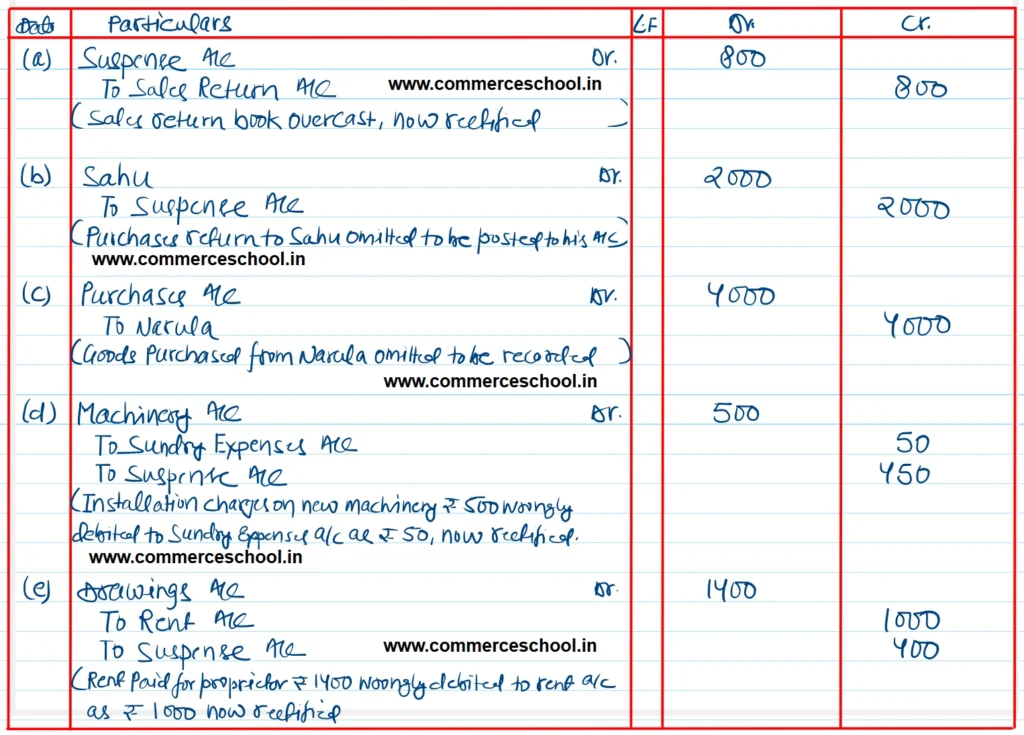 Date Particulars LF Dr. Cr.
(a) Suspense A/c Dr. 800
To Sales Return A/c www.commerceschool.in 800
(Sales return book overcast, now rectified)
(b) Sahu Dr. 2000
To Suspense A/c 2000
(Purchases return to Sahu omitted to be posted to his A/c)
www.commerceschool.in
(c) Purchases A/c Dr. 4000
To Narula 4000
(Goods Purchased from Narula omitted to be recorded)
www.commerceschool.in
(d) Machinery A/c Dr. 500
To Sundry Expenses A/c 50
To Suspense A/c 450
(Installation charges on new machinery ₹ 500 wrongly
debited to Sundry Expenses a/c as ₹ 50, now rectified.
www.commerceschool.in
(e) Drawings A/c Dr. 1400
To Rent A/c 1000
To Suspense A/c www.commerceschool.in 400
(Rent Paid for proprietor ₹ 1400 wrongly debited to rent a/c
as ₹ 1000 now rectified